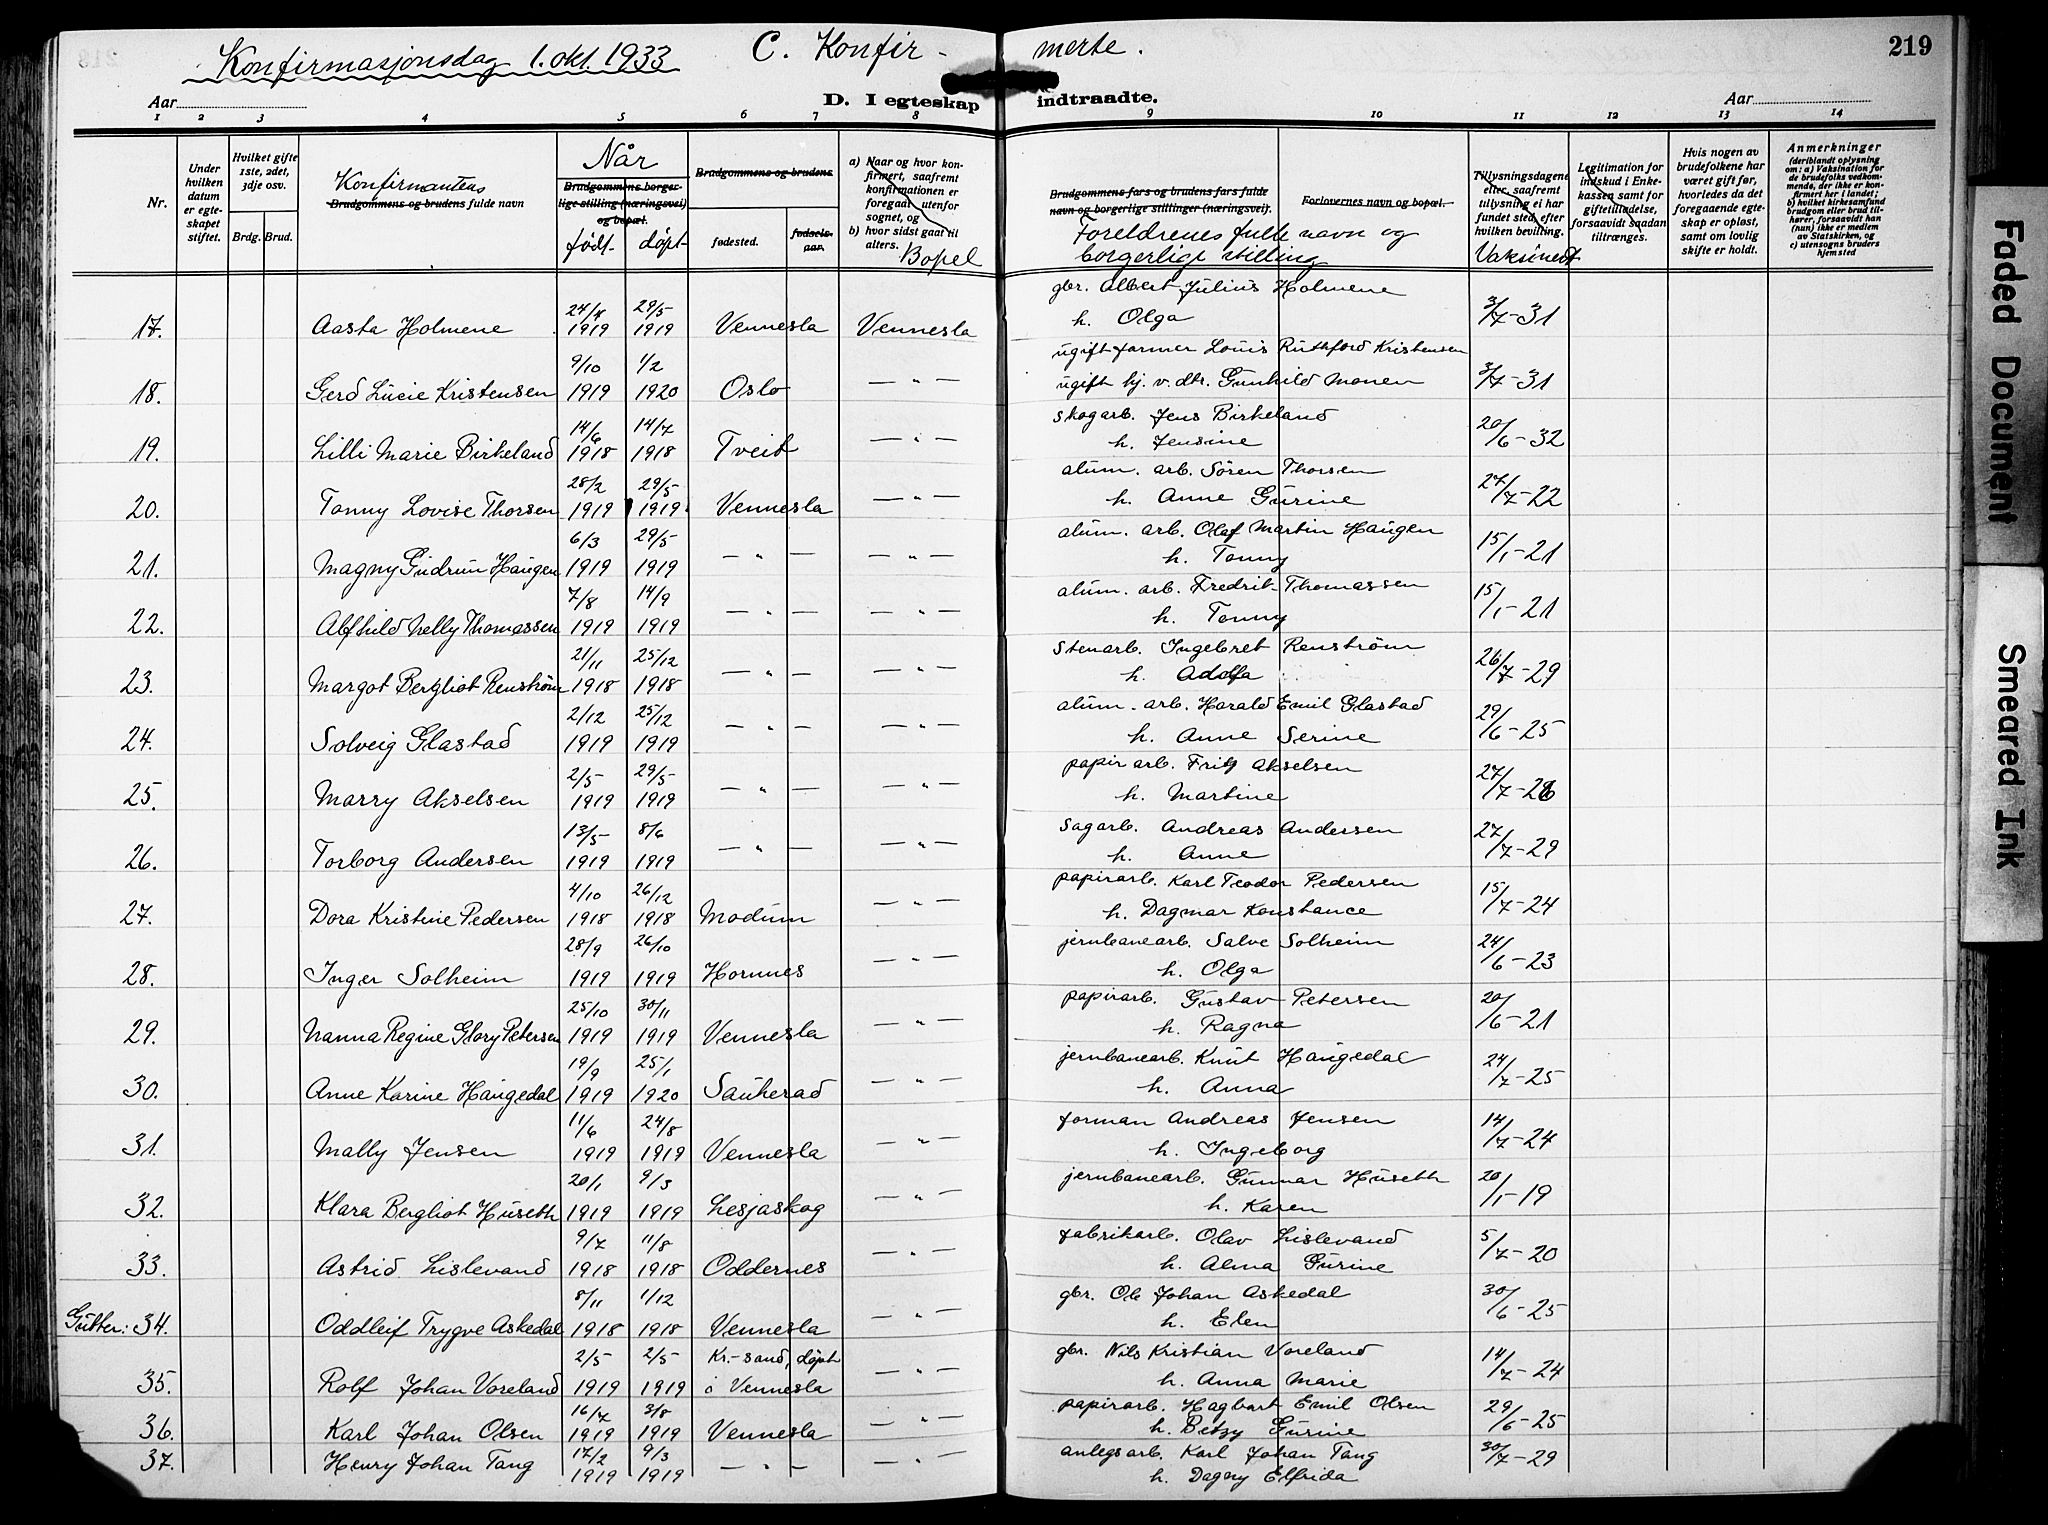 Konfirmasjonsdag 1. okt. 1933 C. Konfir- merte. 219
Aar D. I egteskap indtraadte. Aar
1 2 3 4 5 6 7 8 9 10 11 12 13 14
Nr.
Under hvilken datum er egteskapet stiftet.
Hvilket gifte 1ste, 2det, 3dje osv.
Brdg. Brud.
Konfirmantens
Brudgommens og brudens fulde navn
Når
Brudgommens borgerlige stilling (næringsvei) og bopæl.
født. døpt
Brudgommens og brudens
fødested. fødselsaar.
a) Naar og hvor konfirmert, saafremt konfirmationen er foregaat utenfor sognet, og
b) hvor sidst gaat til alters.
Bopel
Brudgommens fars og brudens fars fulde navn og borgerlige stillinger (næringsvei).
Foreldrenes fulle navn og borgerlige stilling
Forlovernes navn og bopæl.
Tillysningsdagene eller, saafremt tillysning ei har fundet sted, efter hvilken bevilling.
Vaksinert
Legitimation for indskud i Enkekassen samt for giftetilladelse, forsaavidt saadan tiltrænges.
Hvis nogen av brudefolkene har været gift før, hvorledes da det foregaaende egteskap er opløst, samt om lovlig skifte er holdt.
Anmerkninger
(deriblandt oplysning om: a) Vaksination for de brudefolks vedkommende, der ikke er konfirmert her i landet; b) hvilket kirkesamfund brudgom eller brud tilhører, forsaavidt han (hun) ikke er medlem av Statskirken, og c) utensogns bruders hjemsted
17. Aasta Holmene 24/4 1919 29/5 1919 Vennesla Vennesla gbr. Albert Julius Holmene h. Olga 3/7-31
18. Gerd Lucie Kristensen 9/10 1919 1/2 1920 Oslo — " — ugift farmer Louis Ruthford Kristensen ugift hj. v. dtr. Gunhild Monen 3/7-31
19. Lilli Marie Birkeland 14/6 1918 14/7 1918 Tveit — " — skogarb. Jens Birkeland h. Jensine 20/6-32
20. Tonny Lovise Thorsen 28/2 1919 29/5 1919 Vennesla — " — alum. arb. Sören Thorsen h. Anne Gurine 27/7-22
21. Magny Gudrun Haugen 6/3 1919 29/5 1919 — " — — " — alum. arb. Olaf Martin Haugen h. Tonny 15/1-21
22. Alfhild Nelly Thomassen 7/8 1919 14/9 1919 — " — — " — alum. arb. Fredrik Thomassen h. Tonny 15/1-21
23. Margot Bergliot Renstrøm 21/11 1918 25/12 1918 — " — — " — stenarb. Ingebret Renstrøm h. Adolfa 26/7-29
24. Solveig Glastad 2/12 1919 25/12 1919 — " — — " — alum. arb. Harald Emil Glastad h. Anne Serine 29/6-25
25. Marry Akselsen 2/5 1919 29/5 1919 — " — — " — papirarb. Fritz Akselsen h. Martine 27/7-26
26. Torborg Andersen 13/5 1919 8/6 1919 — " — — " — Sagarb. Andreas Andersen h. Anne 27/7-29
27. Dora Kristine Pedersen 4/10 1918 26/12 1918 Modum — " — papirarb. Karl Teodor Pedersen h. Dagmar Konstance 15/7-24
28. Inger Solheim 28/9 1919 26/10 1919 Hornnes — " — jernbanearb. Salve Solheim h. Olga 24/6-23
29. Nanna Regine Glory Petersen 25/10 1919 30/11 1919 Vennesla — " — papirarb. Gustav Petersen h. Ragna 20/6-21
30. Anne Karine Haugedal 19/9 1919 25/1 1920 Sauherad — " — jernbanearb. Knut Haugedal h. Anna 24/7-25
31. Mally Jensen 11/6 1919 24/8 1919 Vennesla — " — forman Andreas Jensen h. Ingeborg 14/7-24
32. Klara Bergliot Huseth 20/1 1919 9/3 1919 Lesjaskog — " — jernbanearb. Gunnar Huseth h. Karen 20/1-19
33. Astrid Lislevand 9/7 1918 11/8 1918 Oddernes — " — fabrikarb. Olav Lislevand h. Alma Gurine 5/7-20
Gutter: 34. Oddleif Trygve Askedal 8/11 1918 1/12 1918 Vennesla — " — gbr. Ole Johan Askedal h. Elen 30/6-25
35. Rolf Johan Voreland 2/5 1919 2/5 1919 Kr.-sand, døpt i Vennesla — " — gbr. Nils Kristian Voreland h. Anna Marie 14/7-24
36. Karl Johan Olsen 16/7 1919 3/8 1919 Vennesla — " — papirarb. Hagbart Emil Olsen h. Betzy Gurine 29/6-25
37. Henry Johan Tang 17/2 1919 9/3 1919 — " — — " — anlegsarb. Karl Johan Tang h. Dagny Elfrida 30/7-29
Faded Document
Smeared Ink